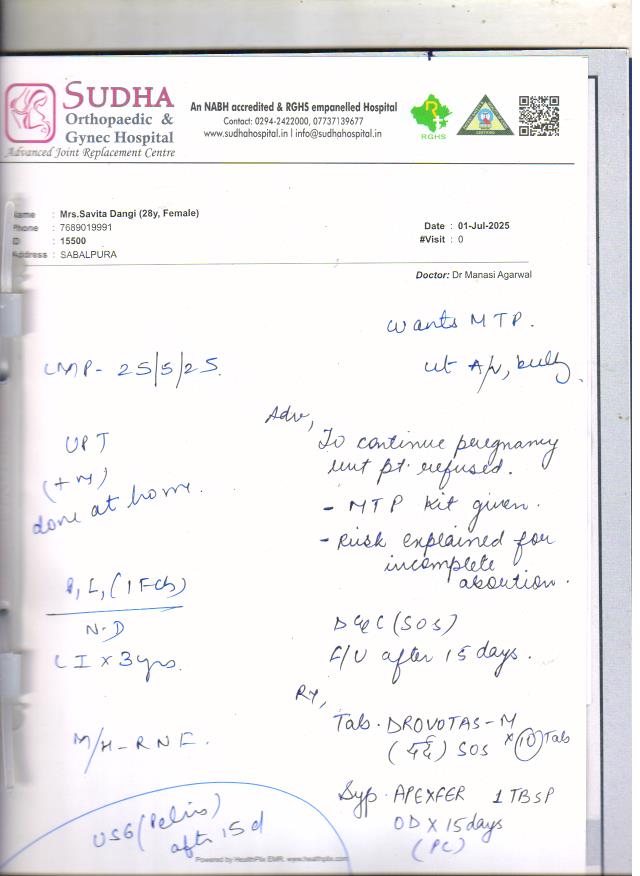 SUDHA
Orthopaedic &
Gynec Hospital
Advanced Joint Replacement Centre
An NABH accredited & RGHS empanelled Hospital
Contact: 0294-2422000, 07737139677
www.sudhahospital.in | info@sudhahospital.in
RGHS
Name : Mrs.Savita Dangi (28y, Female)
Phone : 7689019991
ID : 15500
Address : SABALPURA
Date : 01-Jul-2025
#Visit : 0
Doctor: Dr Manasi Agarwal
Wants MTP.
LMP- 25/5/25.
ut A/v, bulky
Adv,
To continue pregnancy
but pt. refused.
UPT
(+ve)
done at home.
- MTP kit given.
- Risk explained for
incomplete
abortion.
P1L1 (1 Fch)
N.D
LI x 3yrs.
D&C (SOS)
F/U after 15 days.
Rx,
M/H-RNF.
Tab. DROVOTAS-M
SOS x 10 Tab
Syp. APEXFER 1 TBSP
OD x 15 days
(PC)
USG (Pelvis)
aftr 15 d
Powered by HealthPlix EMR. www.healthplix.com